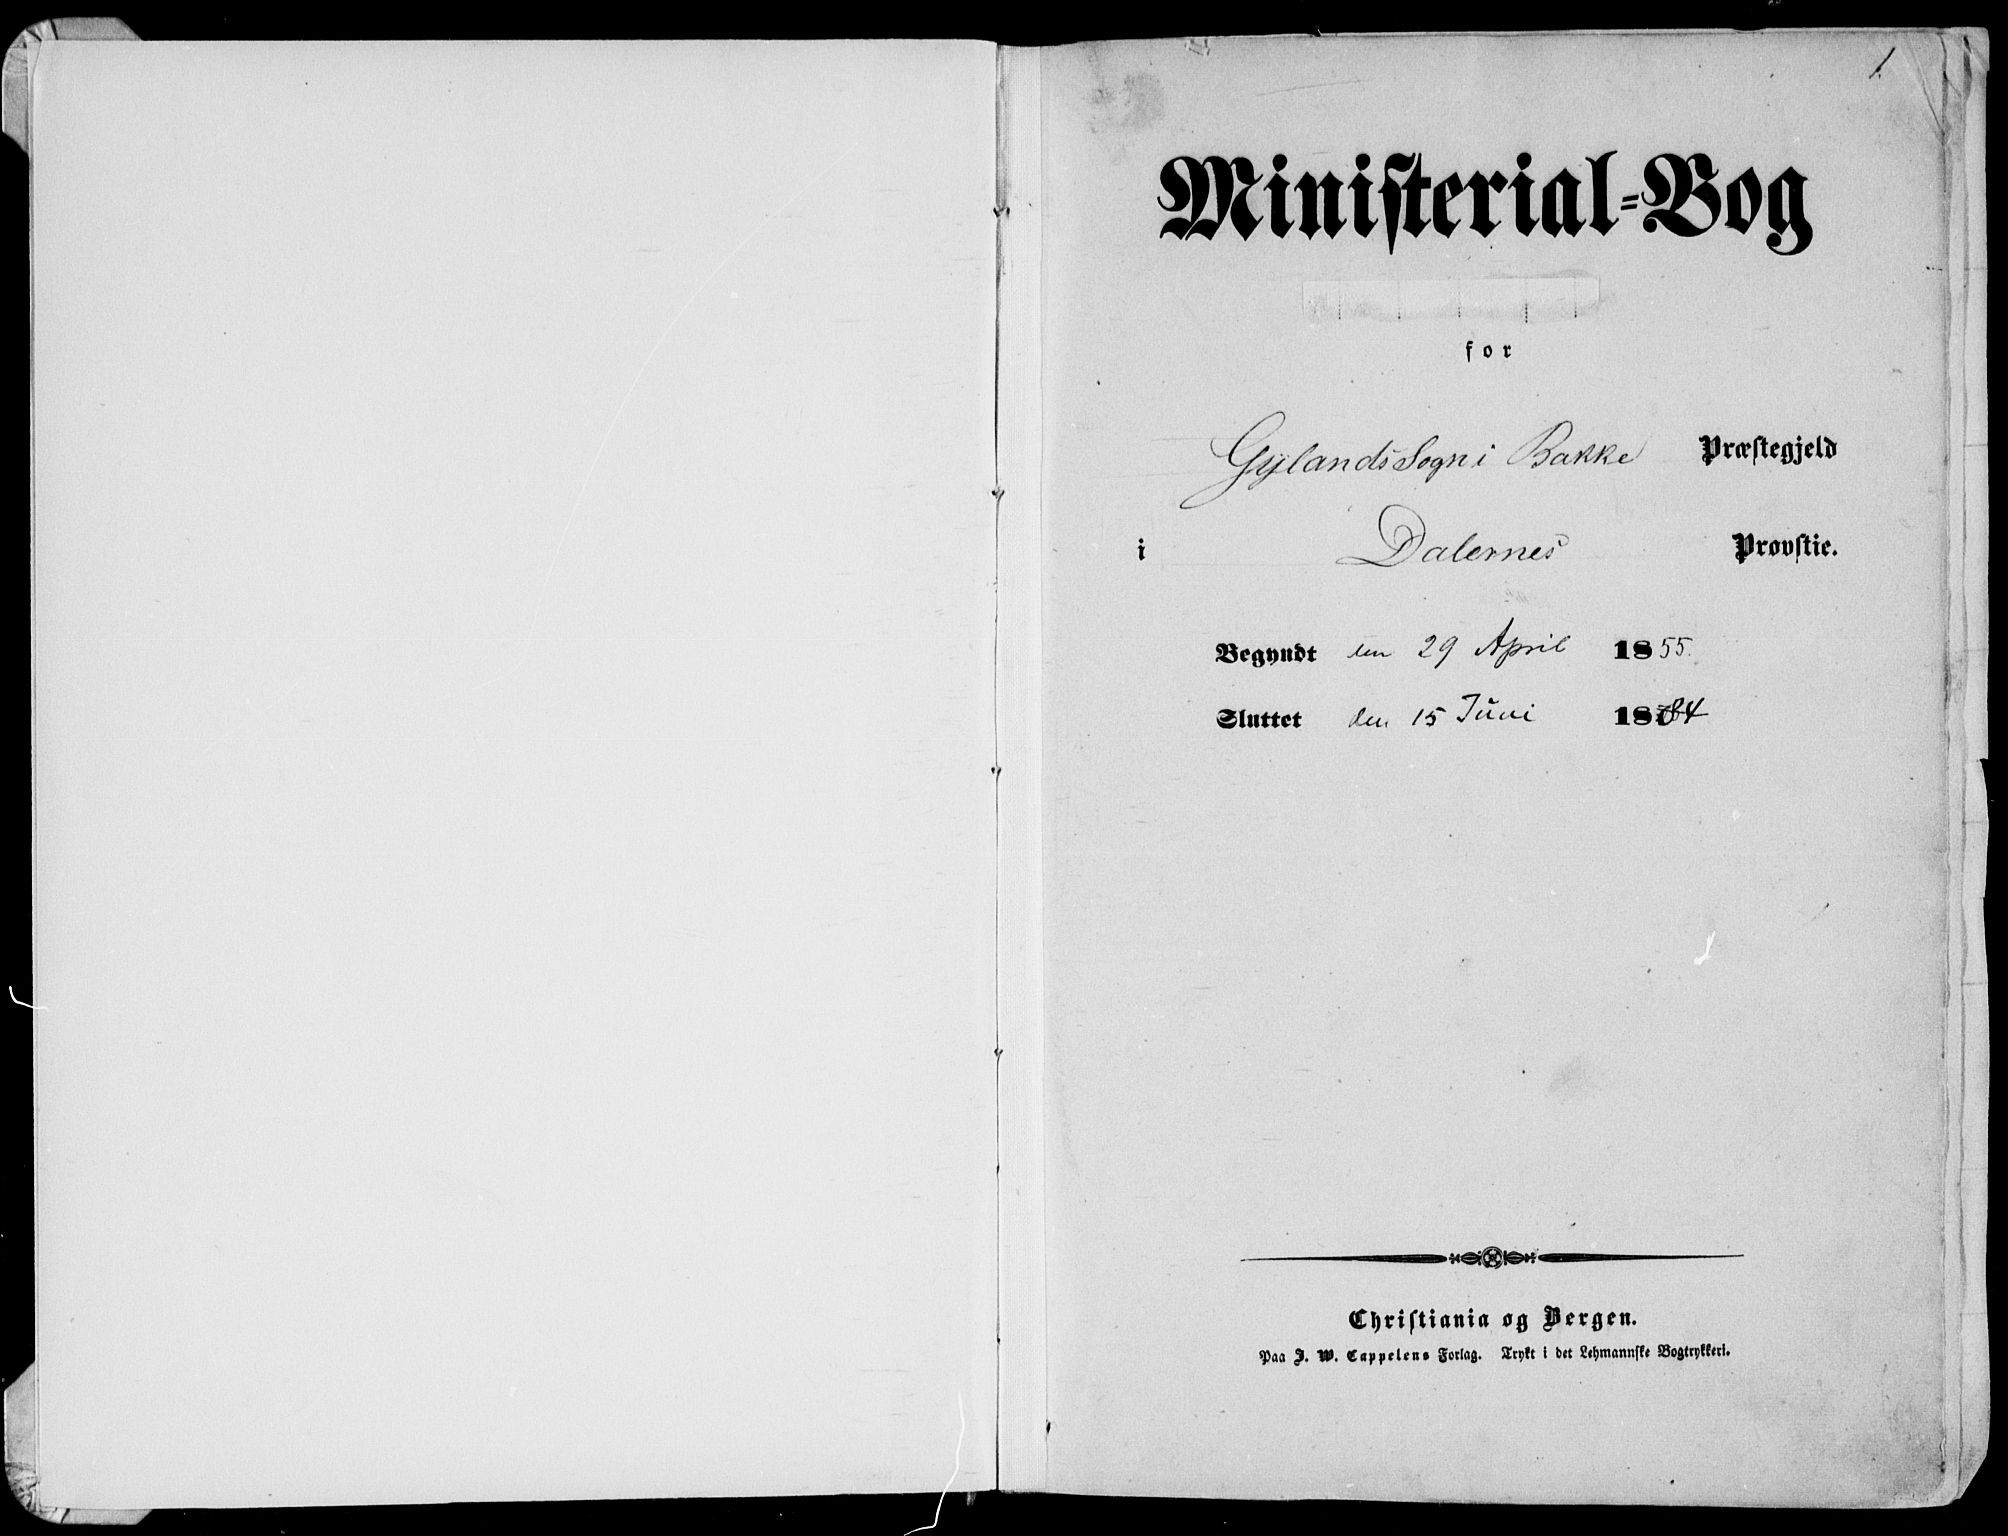 1.
Ministerial-Bog
for
Gylands Sogn i Bakke Præstegjeld
i Dalernes Provstie.
Begyndt den 29 April 1855.
Sluttet den 15 Juni 1884
Christiania og Bergen.
Paa J. W. Cappelens Forlag. Trykt i det Lehmannske Bogtrykkeri.